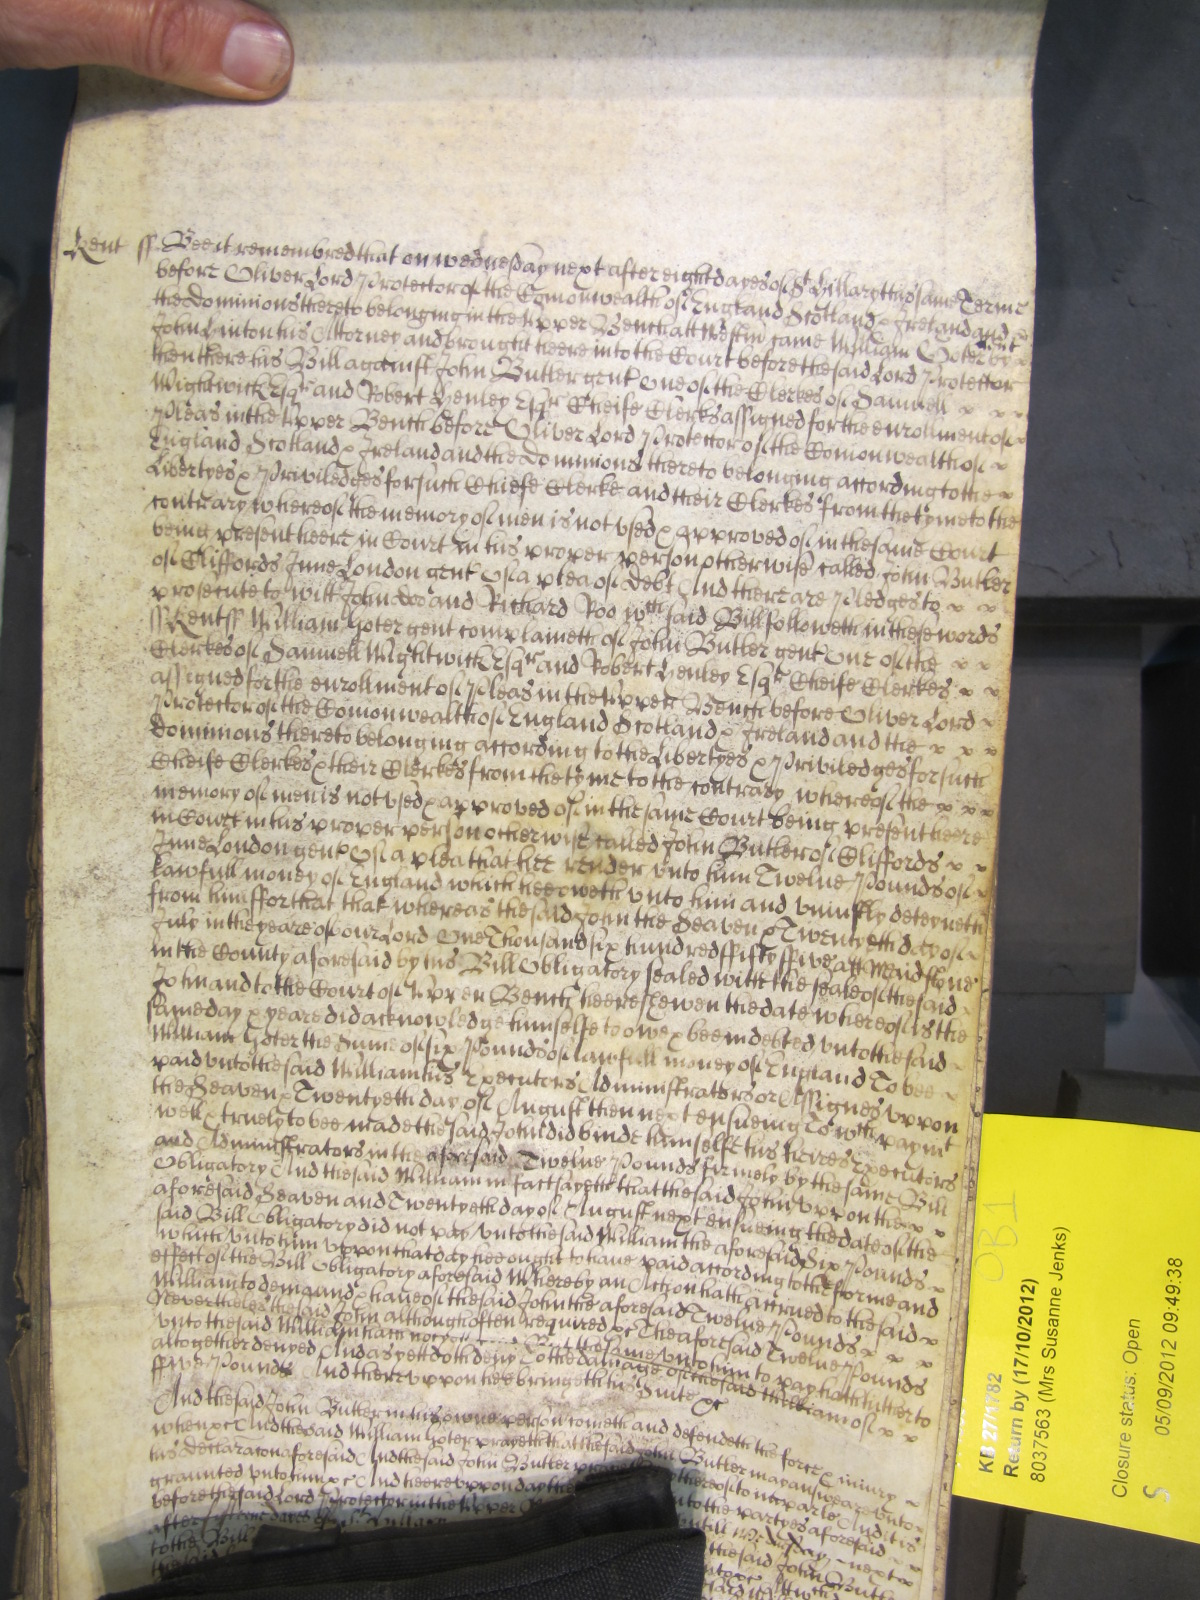 Kent ss Bee it remembred that on wednesday next after eight dayes of St Hillary this same Terme
before Oliver Lord Protector of the Comonwealth of England Scotland & Ireland and
the Dominions thereto belonging in the Upper Bench att Westmr came William Goter gent by
John Linton his Attorney and brought heere into the Court before the said Lord Protector
then there his Bill against John Butler gent One of the Clerkes of Samuell
Wightwick Esqr and Robert Henley Esqr Cheife Clerks assigned for the enrollment of
Pleas in the Upper Bench before Oliver Lord Protector of the Comonwealth of
England Scotland & Ireland and the Dominions thereto belonging according to the
Libertyes & Priviledges for such Cheife Clerke and their Clerkes from the tyme to the
contrary whereof the memory of men is not used & approved of in the same Court
being present heere in Court in his proper person otherwise called John Butler
of Cliffords Inne London gent Of a plea of Debt And there are Pledges to
prosecute to witt John Doo and Richard Roo wch said Bill followeth in these words
ss Kent ss William Goter gent complaineth of John Butler gent One of the
Clerkes of Samuell Wightwick Esqr and Robert Henley Esqr Cheife Clerkes
assigned for the enrollment of Pleas in the Upper Bench before Oliver Lord
Protector of the Comonwealth of England Scotland & Ireland and the
Dominions thereto belonging according to the Libertyes & Priviledges for such
Cheife Clerkes & their Clerkes from the tyme to the contrary whereof the
memory of men is not used & approved of in the same Court being present heere
in Court in his proper person otherwise called John Butler of Cliffords
Inne London gent Of a plea that hee render unto him Twelve Pounds of
Lawfull money of England which hee oweth unto him and uniustly deteyneth
from him ffor that that whereas the said John the Seaven & Twentyeth day of
July in the yeare of our Lord One Thousand six hundred ffifty ffive att Maidstone
in the County aforesaid by his Bill Obligatory sealed with the seale of the said
John and to the Court of Upper Bench heere shewen the date whereof is the
same day & yeare did acknowledge himselfe to owe & bee indebted unto the said
William Goter the Sume of six Pounds of lawfull money of England To bee
paid unto the said William his Executors Administrators or Assignes uppon
the Seaven & Twentyeth day of August then next ensueing To wch paymt
well & truely to bee made the said John did binde himselfe his heires Executors
and Administrators in the aforesaid Twelve Pounds firmely by the same Bill
Obligatory And the said William in fact sayeth that the said John uppon the
aforesaid Seaven and Twentyeth day of August next ensueing the date of the
said Bill Obligatory did not pay unto the said William the aforesaid Six Pounds
which unto him uppon that day hee ought to have paid according to the forme and
effect of the Bill Obligatory aforesaid Whereby an Action hath accrued to the said
William to demaand & have of the said John the aforesaid Twelve Pounds
Nevertheles the said John although often required &c The aforesaid Twelve Pounds
unto the said William hath not But the same unto him to pay hath hitherto
altogether denyed And as yett doth deny To the damage of the said William of
ffive Pounds And thereuppon hee bringeth his Suite &c
And the said John Butler in his owne person cometh and defendeth the force & iniury
when &c And the said William Goter prayeth that the said John Butler may answeare unto
his declaracon aforesaid And the said John Butler thereof to imparle And it is
graunted unto him &c And heereuppon day to the partyes aforesaid
before the said Lord Protector in the Upper untill Wednesday next
after the said John Butler
to the Bill
the said
KB 27/1782
Return by (17/10/2012)
8037563 (Mrs Susanne Jenks)
Closure status: Open
05/09/2012 09:49:38
S
OB1